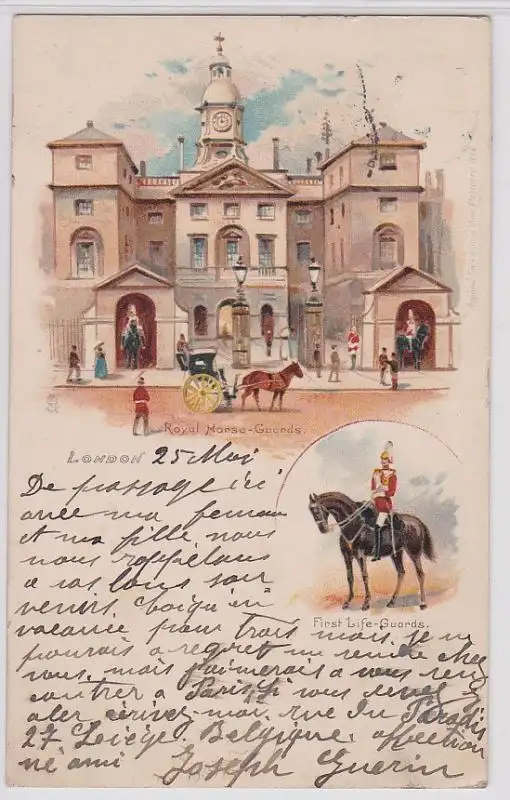 Royal Horse-Guards.
LONDON 25 Mai
De passage ici
avec ma femme
et ma fille, nous
nous rappelons
a vos bons sou
venirs.
vacance pour trois mois, je ne
pourais a regret me rendre chez
vous, mais j'aimerais a vous ren
contrer a Paris, si vous devez y
aler, écrivez-moi, rue du Paradis
27 Liége. Belgique. affection
né ami Joseph Guerin
First Life-Guards.